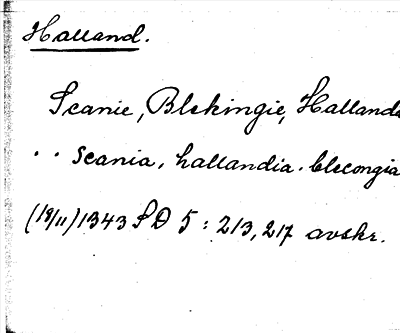 Halland.
Scanie, Blekingie, Hallande
. . Scania. hallandia. blecongia
(18/11) 1343 SD 5 : 213, 217 avskr.